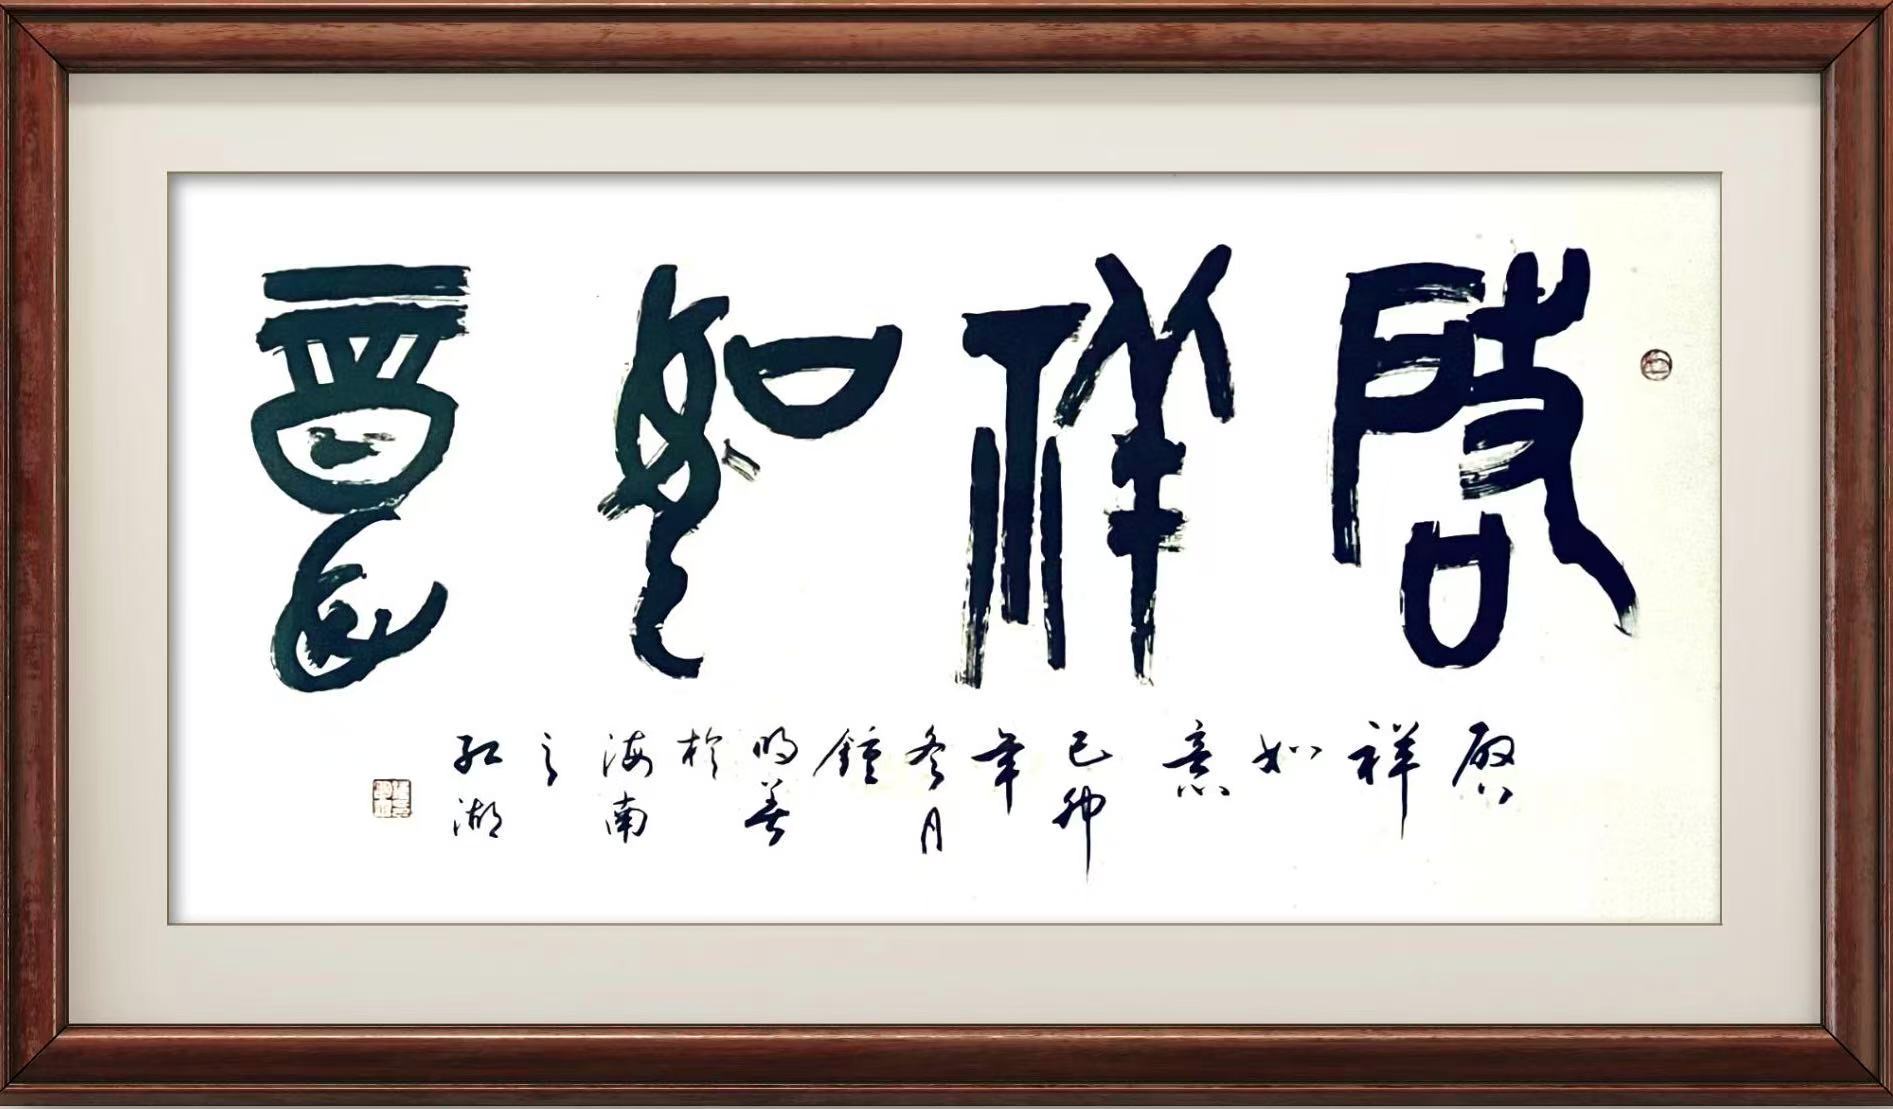 啟祥如意
啟祥如意己卯年冬月鍾明善於海南之紅湖